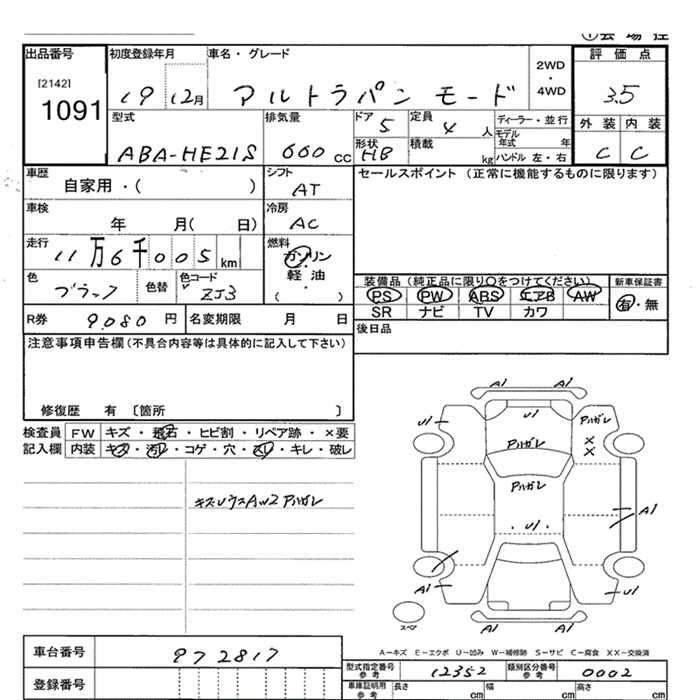 出品番号
[2142]
1091
初度登録年月
19 12月
車名・グレード
アルトラパン モード
2WD
・
4WD
評価点
3.5
外装 内装
C C
型式
ABA-HE21S
排気量
660 cc
ドア 5
形状 HB
定員 4 人
積載 kg
ディーラー・並行
モデル
年式 年
ハンドル 左・右
車歴
自家用・( )
シフト
AT
セールスポイント (正常に機能するものに限ります)
車検
年 月( 日)
冷房
AC
走行
11万6千005 km
燃料
ガソリン
軽油
( ・ )
色
ブラック
色替
色コード
ZJ3
装備品 (純正品に限り○をつけてください)
PS PW ABS エアB AW
SR ナビ TV カワ
新車保証書
有・無
R券 9.080 円
名変期限 月 日
後日品
注意事項申告欄(不具合内容等は具体的に記入して下さい)
修復歴 有 〔箇所 〕
検査員 FW キズ・飛石・ヒビ割・リペア跡・×要
記入欄 内装 キズ・汚れ・コゲ・穴・スレ・キレ・破レ
キズUウスAW2アルガレ
A1 A1
U1 U1 アルガレ
アルガレ ×
×
アルガレ
A1
U1
A1 U1
スペア
A-キズ E-エクボ U-凹み W-補修跡 S-サビ C-腐食 XX-交換済
車台番号 972817
登録番号
型式指定番号
参考
12352
類別区分番号
参考
0002
車庫証明用
参考
長さ cm
幅 cm
高さ cm